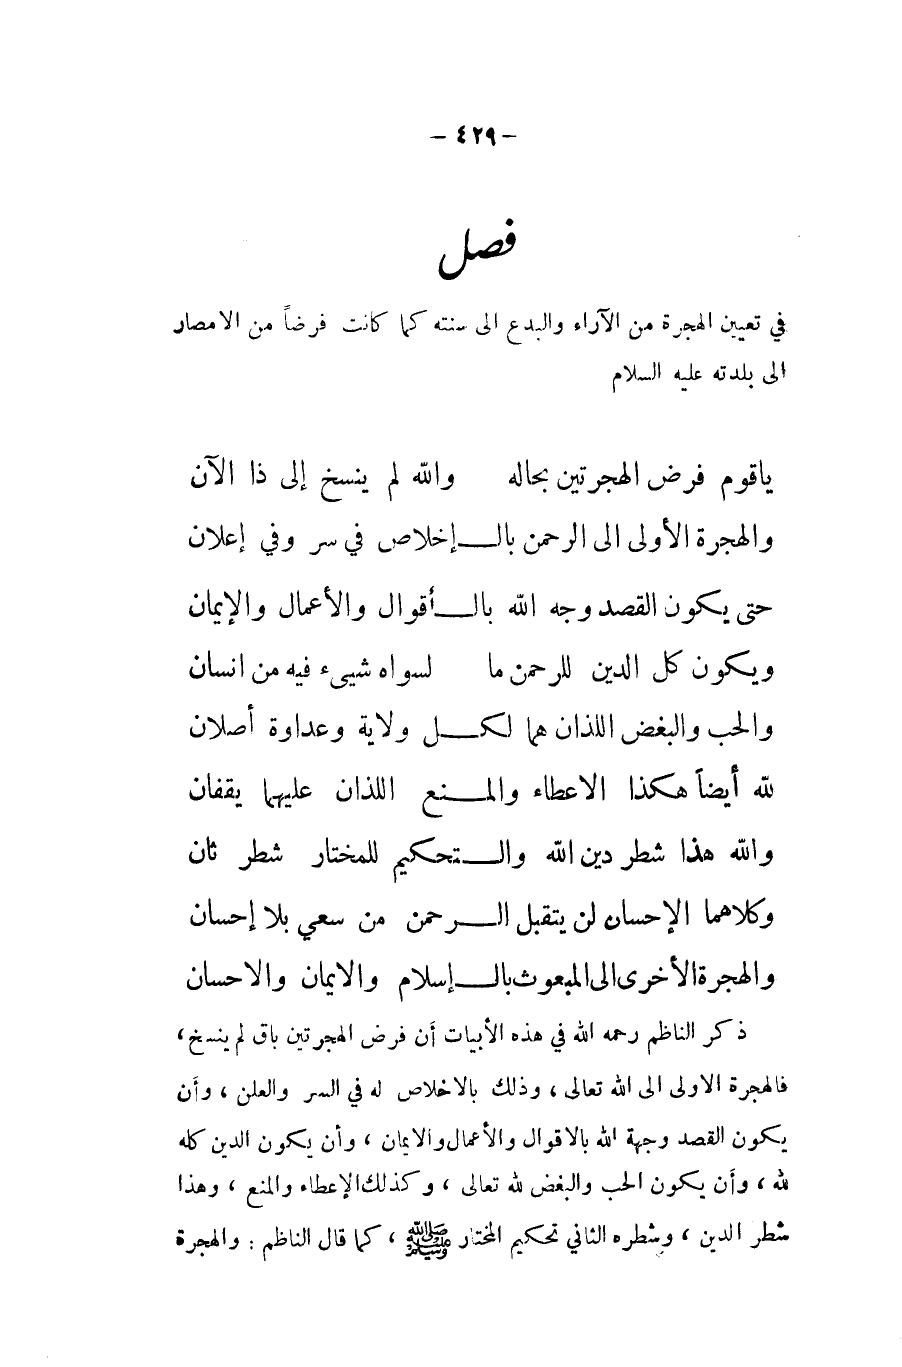 — ٤٢٩ —
فصل
في تعيين الهجرة من الآراء والبدع الى سنته كما كانت فرضاً من الامصار
الى بلدته عليه السلام
ياقوم فرض الهجرتين بحاله والله لم ينسخ إلى ذا الآن
والهجرة الأولى الى الرحمن بالـإخلاص في سر وفي إعلان
حتى يكون القصد وجه الله بالـأقوال والأعمال والإيمان
ويكون كل الدين للرحمن ما لسواه شييء فيه من انسان
والحب والبغض اللذان هما لكـل ولاية وعداوة أصلان
لله أيضاً هكذا الاعطاء والمـنع اللذان عليهما يقفان
والله هذا شطر دين الله والـتحكيم للمختار شطر ثان
وكلاهما الإحسان لن يتقبل الـرحمن من سعي بلا إحسان
والهجرة الأخرى الى المبعوث بالـإسلام والايمان والاحسان
ذكر الناظم رحمه الله في هذه الأبيات أن فرض الهجرتين باق لم ينسخ ،
فالهجرة الاولى الى الله تعالى ، وذلك بالاخلاص له في السر والعلن ، وأن
يكون القصد وجهة الله بالاقوال والأعمال والايمان ، وأن يكون الدين كله
لله ، وأن يكون الحب والبغض لله تعالى ، وكذلك الإعطاء والمنع ، وهذا
شطر الدين ، وشطره الثاني تحكيم المختار ﷺ ، كما قال الناظم : والهجرة